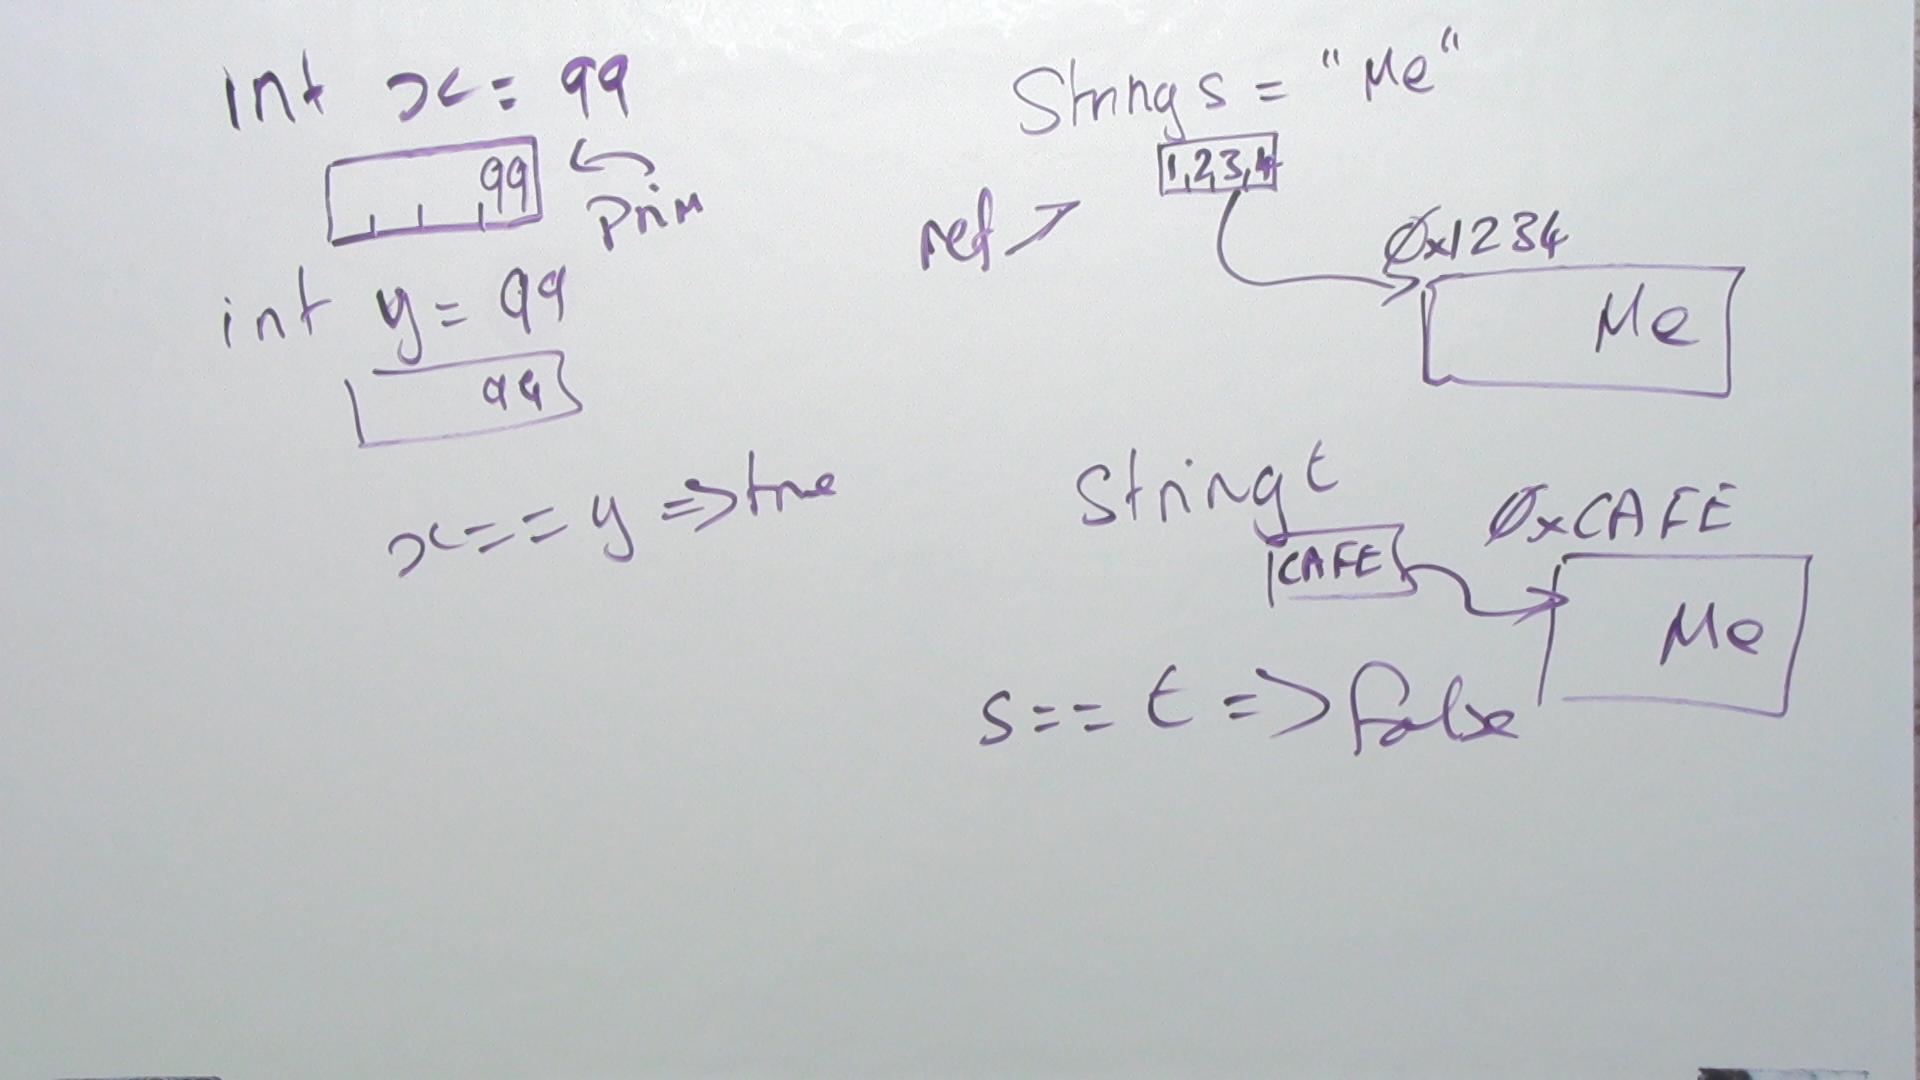 int x = 99
99
Prim
int y = 99
99
x == y => true
String s = "Me"
1,2,3,4
ref
0x1234
Me
String t
CAFE
0xCAFE
Me
s == t => false